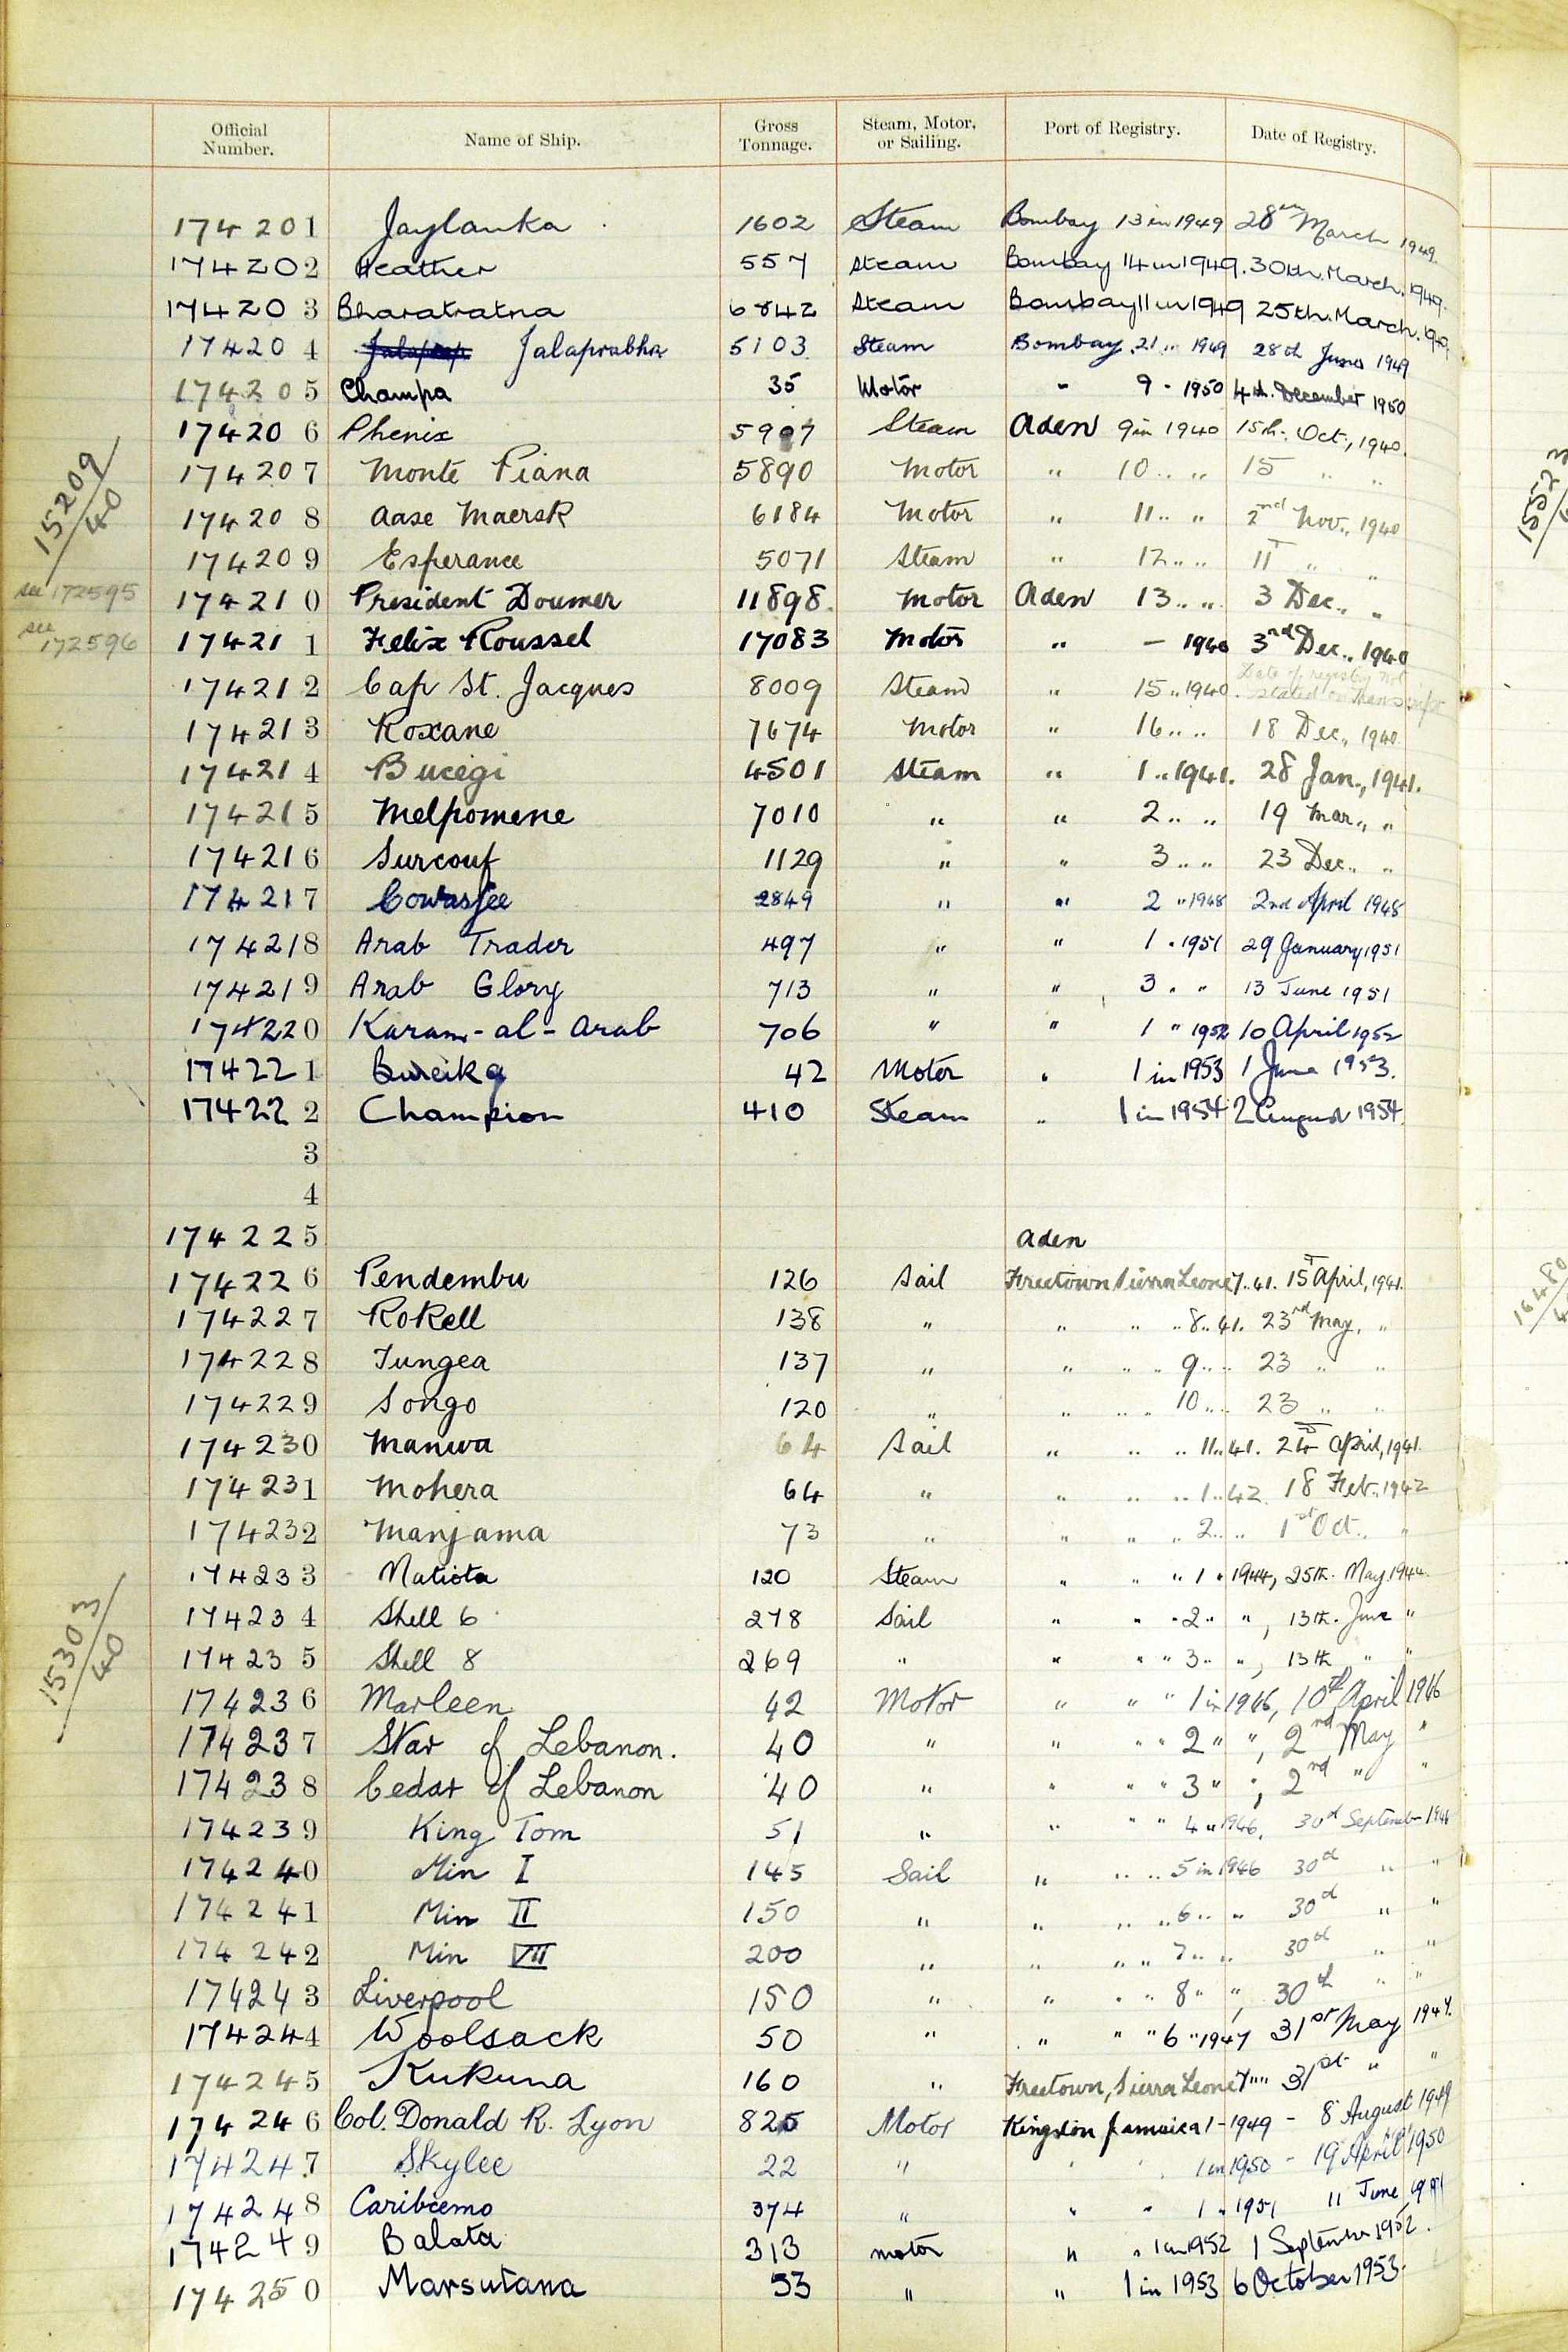 Official Number. Name of Ship. Gross Tonnage. Steam, Motor, or Sailing. Port of Registry. Date of Registry.
174201 Jaylanka 1602 Steam Bombay 13 in 1949 28th March 1949.
174202 Heather 557 Steam Bombay 14 in 1949. 30th. March. 1949.
174203 Bharatratna 6842 Steam Bombay 11 in 1949 25th. March.
174204 Jalaprabha 5103 Steam Bombay 21 " 1949 28th June 1949
174205 Champa 35 Motor " 9 " 1950 4th. December 1950
174206 Phenix 5907 Steam Aden 9 in 1940 15th. Oct., 1940.
15209/40
174207 Monte Piana 5890 Motor " 10 " " 15 " "
174208 Aase Maersk 6184 Motor " 11 " " 2nd Nov., 1940
174209 Esperance 5071 Steam " 12 " " 11 " "
see 172595 174210 President Doumer 11898. Motor Aden 13 " " 3 Dec., "
see 172596 174211 Felix Roussel 17083 Motor " — 1940 3rd Dec., 1940
174212 Cap St. Jacques 8009 Steam " 15 " 1940. Date of registry not stated on transcript
174213 Roxane 7674 Motor " 16 " " 18 Dec., 1940.
174214 Bucegi 4501 Steam " 1 " 1941. 28 Jan., 1941.
174215 Melpomene 7010 " " 2 " " 19 Mar., "
174216 Surcouf 1129 " " 3 " " 23 Dec., "
174217 Cowasjee 2849 " " 2 " 1948 2nd April 1948
174218 Arab Trader 497 " " 1 " 1951 29 January 1951
174219 Arab Glory 713 " " 3 " " 13 June 1951
174220 Karam-al-Arab 706 " " 1 " 1952 10 April 1952
174221 42 Motor " 1 in 1953 1 June 1953.
174222 Champion 410 Steam " 1 in 1954 2 August 1954.
3
4
174225 Aden
174226 Pendembu 126 Sail Freetown Sierra Leone 7 " 41. 15 April, 1941.
174227 Rokell 138 " " " " 8 " 41. 23rd May, "
174228 Tungea 137 " " " " 9 " " 23 " "
174229 Songo 120 " " " " 10 " " 23 " "
174230 Manwa 64 Sail " " " 11 " 41. 24 April, 1941.
174231 Mohera 64 " " " " 1 " 42. 18 Feb., 1942
174232 Manjama 73 " " " " 2 " " 1st Oct., "
174233 120 Steam " " " 1 " 1944, 25th. May 1944.
15303/40
174234 Shell 6 278 Sail " " " 2 " ", 13th. June "
174235 Shell 8 269 " " " " 3 " ", 13th " "
174236 Marleen 42 Motor " " " 1 in 1946, 10th April 1946
174237 Star of Lebanon. 40 " " " " 2 " ", 2nd May "
174238 Cedar of Lebanon 40 " " " " 3 " ", 2nd " "
174239 King Tom 51 " " " " 4 " 1946, 30d September 1946
174240 Min I 145 Sail " " " 5 in 1946 30d " "
174241 Min II 150 " " " " 6 " " 30d " "
174242 Min VII 200 " " " " 7 " " 30d " "
174243 Liverpool 150 " " " " 8 " ", 30th " "
174244 Woolsack 50 " " " " 6 " 1947 31st May 1947.
174245 Kukuna 160 " Freetown, Sierra Leone 7 " " 31st " "
174246 Col. Donald R. Lyon 825 Motor Kingston Jamaica 1 - 1949 - 8 August 1949
174247 Skylee 22 " " " 1 in 1950 - 19 April 1950
174248 374 " " " 1 " 1951 11 June 1951
174249 Balata 313 motor " " 1 in 1952 1 September 1952.
174250 Marsutana 53 " " 1 in 1953 6 October 1953.